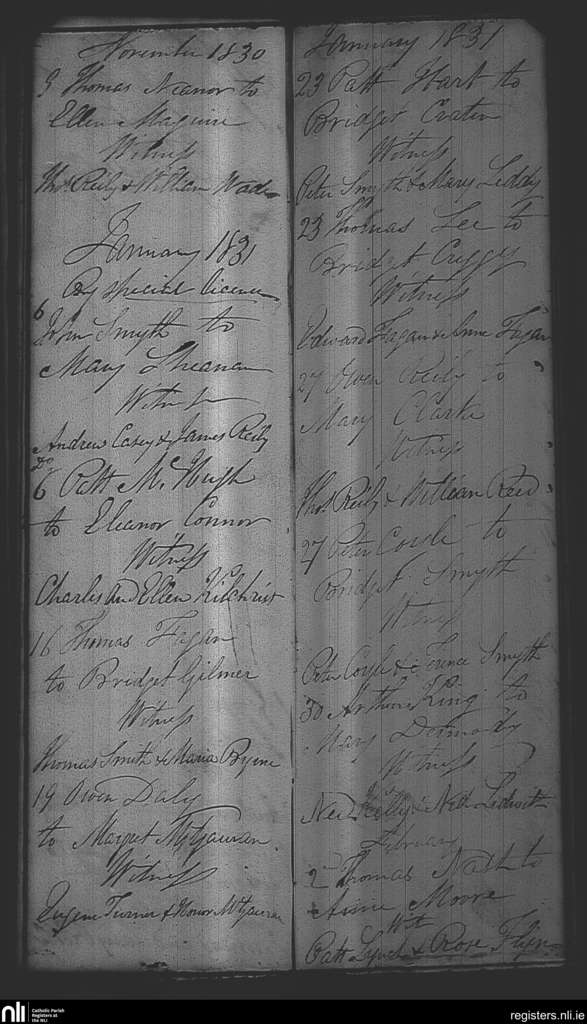 November 1830
3 Thomas Neanor to
Ellen Maguire
Witness
Thos Reily & William Wade
January 1831
By special licence
6
John Smyth to
Mary Sheanan
Witness
Andrew Casey & James Reily
Do
6 Patt McHugh
to Eleanor Connor
Witness
Charles And Ellen Kilchrist
16 Thomas Fagan
to Bridget Gilmer
Witness
Thomas Smith & Maria Byrne
19 Owen Daly
to Margret
Witness
Eugene Turner & Honor
January 1831
23 Patt Hart to
Bridget
Witness
Peter Smyth & Mary Leddy
23 Thomas Lee to
Bridget
Witness
Edward Fagan & Anne Fagan
27 Owen Reily to
Mary Clarke
Witness
Thos Reily & William Reid
27 Peter Coyle to
Bridget Smyth
Witness
Peter Coyle & Smyth
30 Arthur King to
Mary Dermody
Witness
Ned Kelly & Ned Ledwith
February
2 Thomas Nash to
Anne Moore
Wit
Patt Lynch & Rose Flynn
nli
Catholic Parish
Registers at
the NLI
registers.nli.ie